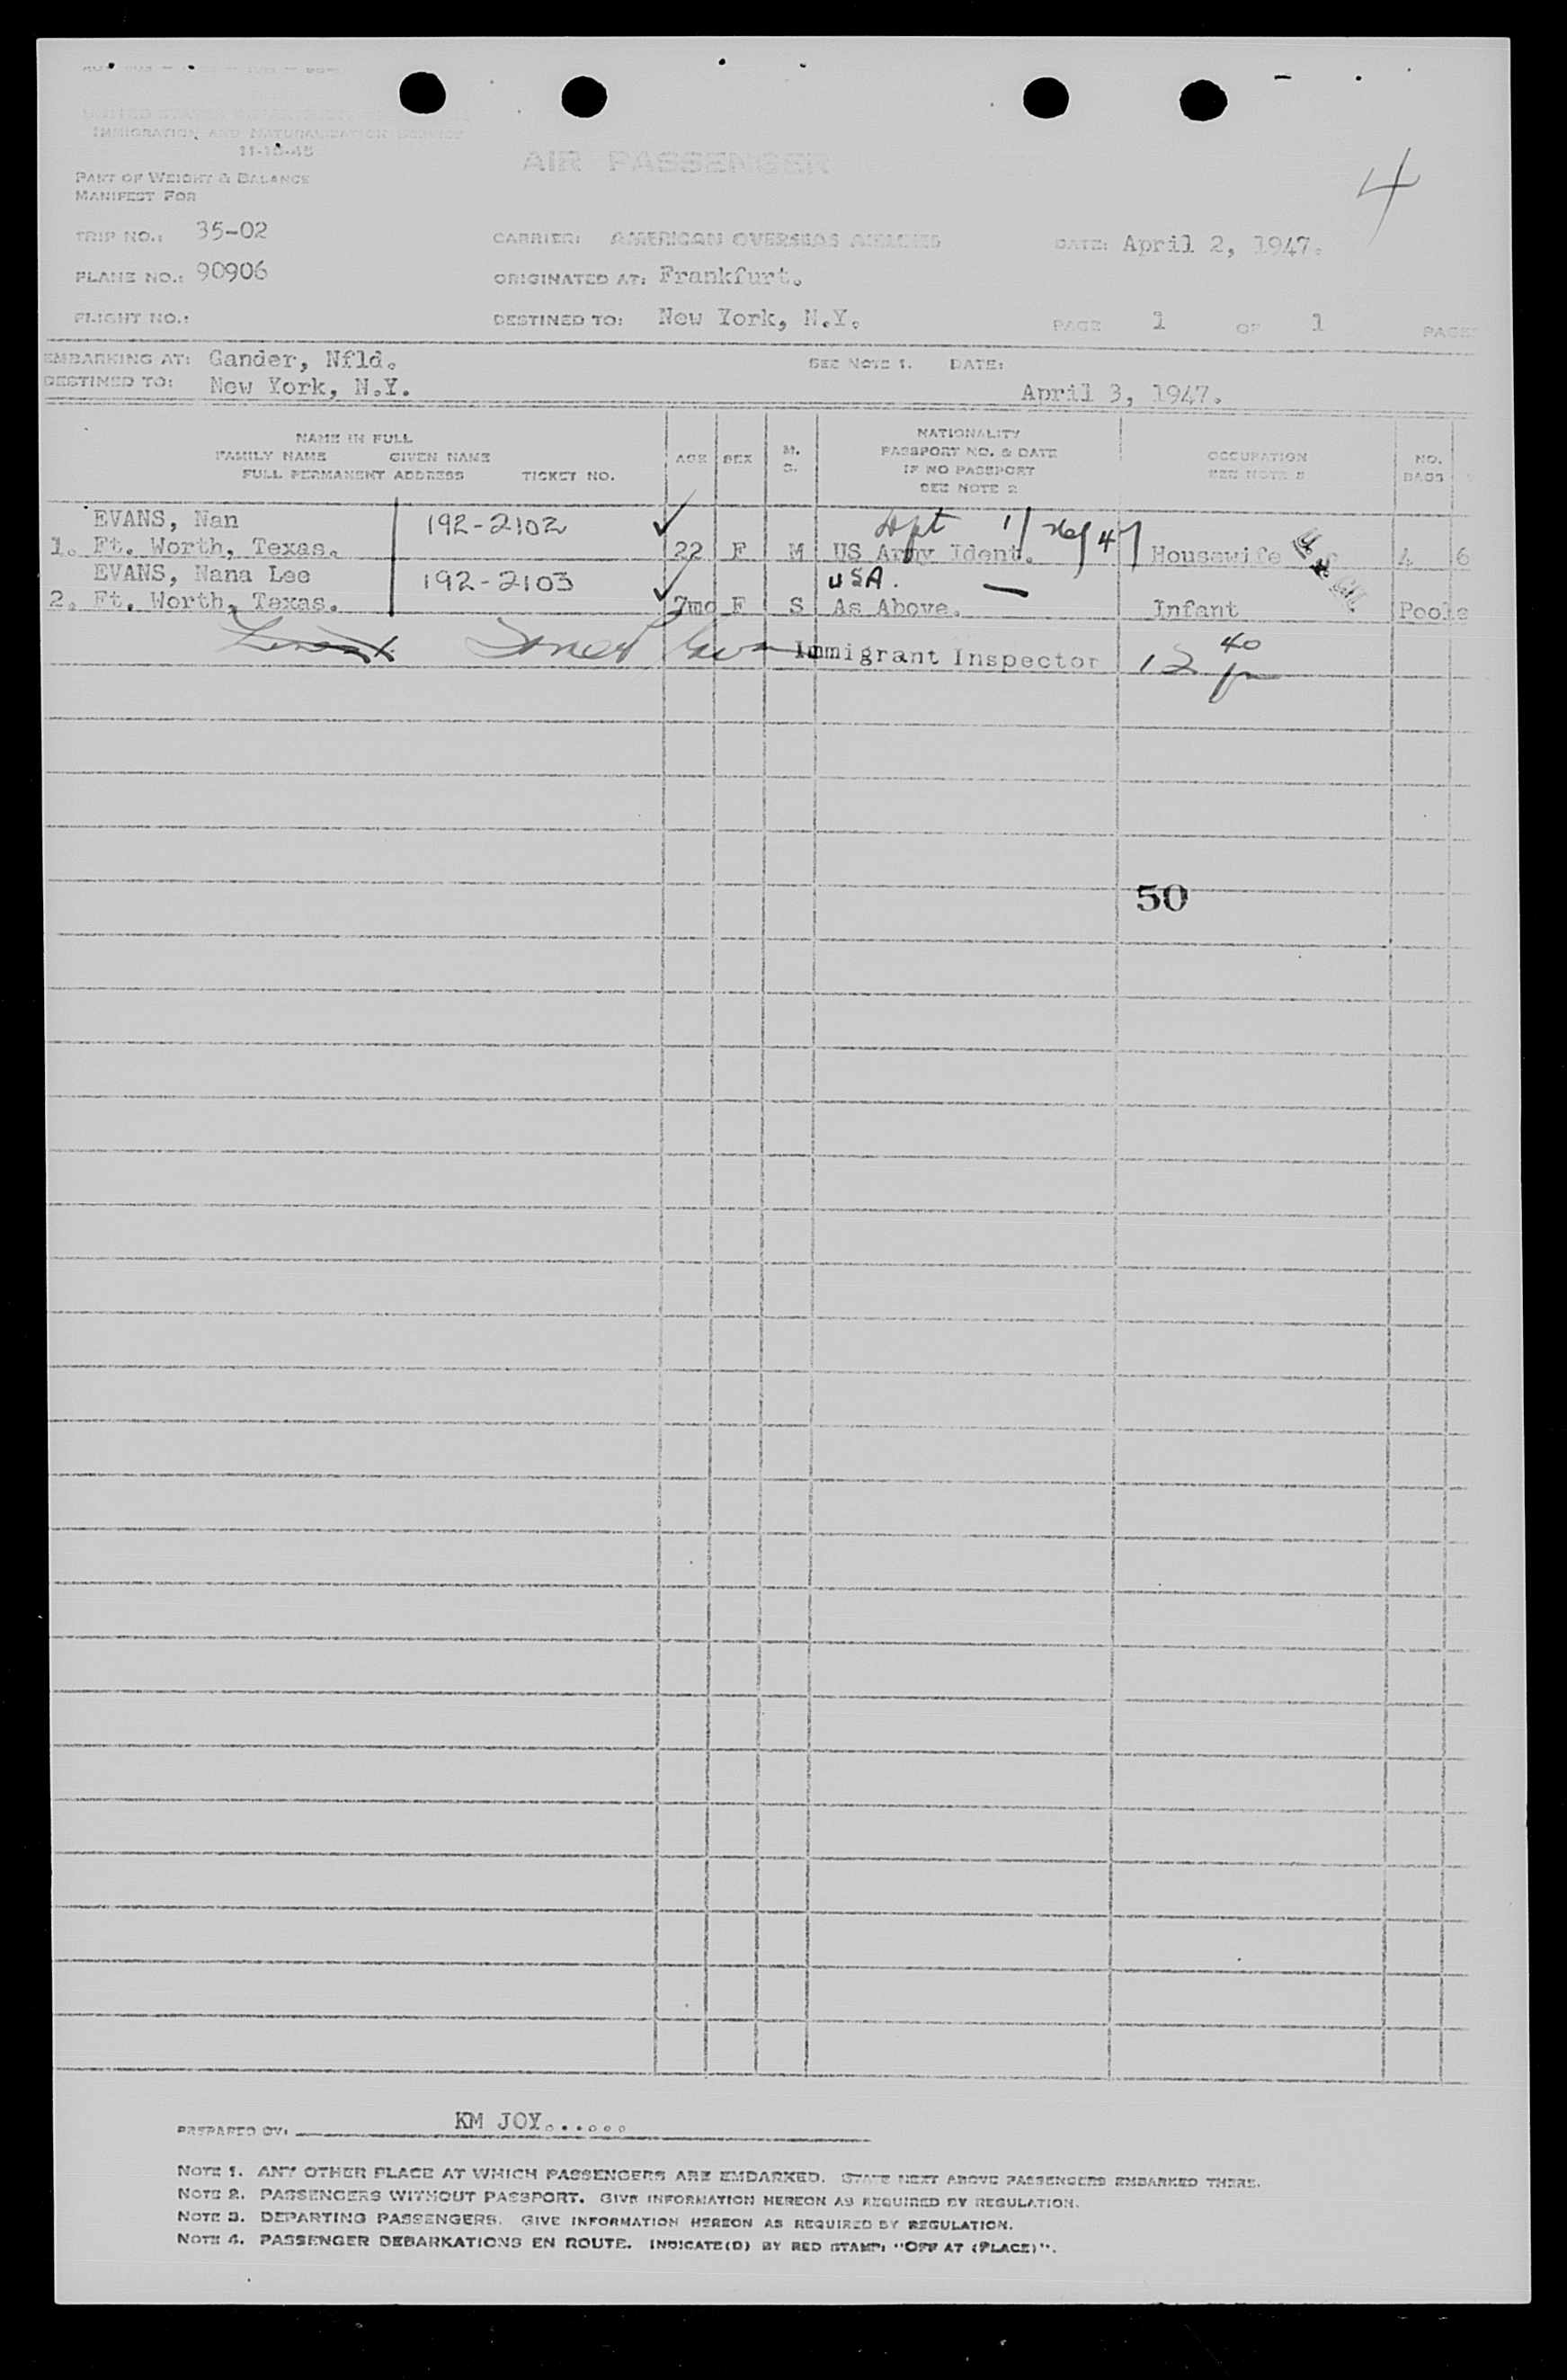 IMMIGRATION AND NATURALIZATION SERVICE
11-15-45
AIR PASSENGER
4
PART OF WEIGHT & BALANCE
MANIFEST FOR
TRIP NO.: 35-02 CARRIER: AMERICAN OVERSEAS AIRLINES DATE: April 2, 1947.
PLANE NO.: 90906 ORIGINATED AT: Frankfurt.
FLIGHT NO.: DESTINED TO: New York, N.Y. PAGE 1 OF 1 PAGES
EMBARKING AT: Gander, Nfld. SEE NOTE 1. DATE:
DESTINED TO: New York, N.Y. April 3, 1947.
NAME IN FULL
FAMILY NAME GIVEN NAME
FULL PERMANENT ADDRESS TICKET NO.
AGE SEX M. S.
NATIONALITY
PASSPORT NO. & DATE
IF NO PASSPORT
SEE NOTE 2
OCCUPATION
SEE NOTE 3
NO. BAGS
EVANS, Nan 192-2102
1. Ft. Worth, Texas. 22 F M US Army Ident. Housewife 4 6
EVANS, Nana Lee 192-2103 USA.
2. Ft. Worth, Texas. 7mo F S As Above. Infant Poole
Immigrant Inspector 12 40
50
PREPARED BY: KM JOY......
NOTE 1. ANY OTHER PLACE AT WHICH PASSENGERS ARE EMBARKED. STATE NEXT ABOVE PASSENGERS EMBARKED THERE.
NOTE 2. PASSENGERS WITHOUT PASSPORT. GIVE INFORMATION HEREON AS REQUIRED BY REGULATION.
NOTE 3. DEPARTING PASSENGERS. GIVE INFORMATION HEREON AS REQUIRED BY REGULATION.
NOTE 4. PASSENGER DEBARKATIONS EN ROUTE. INDICATE(D) BY RED STAMP: "OFF AT (PLACE)".